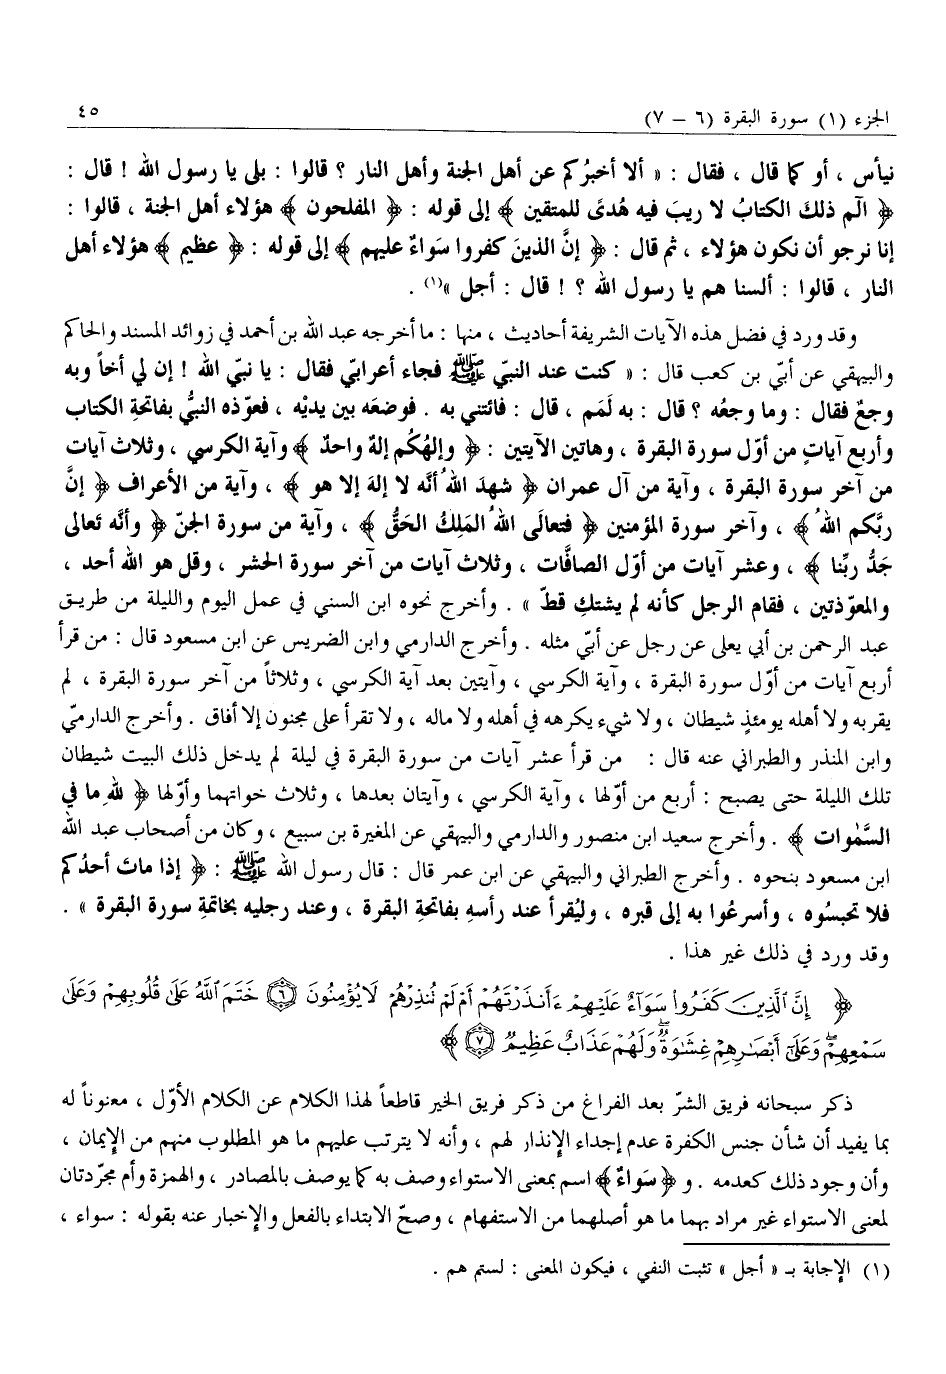 الجزء (١) سورة البقرة (٦ – ٧)
٤٥
نيأس ، أو كما قال ، فقال : « ألا أخبرُكم عن أهل الجنة وأهل النار ؟ قالوا : بلى يا رسول الله ! قال :
﴿ الَم ذلك الكتابُ لا ريبَ فيه هُدىً للمتقين ﴾ إلى قوله : ﴿ المفلحون ﴾ هؤلاء أهل الجنة ، قالوا :
إنا نرجو أن نكون هؤلاء ، ثم قال : ﴿ إنَّ الذينَ كفروا سَواءٌ عليهم ﴾ إلى قوله : ﴿ عظيم ﴾ هؤلاء أهل
النار ، قالوا : ألسنا هم يا رسول الله ؟ ! قال : أجل »(١) .
وقد ورد في فضل هذه الآيات الشريفة أحاديث ، منها : ما أخرجه عبد الله بن أحمد في زوائد المسند والحاكم
والبيهقي عن أبيّ بن كعب قال : « كنت عند النبيّ ﷺ فجاء أعرابيّ فقال : يا نبيّ الله ! إن لي أخاً وبه
وجعٌ فقال : وما وجعُه ؟ قال : به لَمَم ، قال : فائتني به . فوضعَه بين يديْه ، فعوّذه النبيُّ بفاتحةِ الكتاب
وأربع آياتٍ من أوّل سورة البقرة ، وهاتين الآيتين : ﴿ وإلهُكُم إلهٌ واحدٌ ﴾ وآية الكرسي ، وثلاث آيات
من آخر سورة البقرة ، وآية من آل عمران ﴿ شهدَ اللهُ أنَّه لا إلهَ إلا هو ﴾ ، وآية من الأعراف ﴿ إنَّ
ربَّكم اللهُ ﴾ ، وآخر سورة المؤمنين ﴿ فتعالَى اللهُ المَلِكُ الحَقُّ ﴾ ، وآية من سورة الجنّ ﴿ وأنَّه تَعالى
جَدُّ ربِّنا ﴾ ، وعشر آيات من أوّل الصافَّات ، وثلاث آيات من آخر سورة الحشر ، وقل هو الله أحد ،
والمعوّذتين ، فقام الرجل كأنه لم يشتكِ قطّ » . وأخرج نحوه ابن السني في عمل اليوم والليلة من طريق
عبد الرحمن بن أبي يعلى عن رجل عن أبيّ مثله . وأخرج الدارمي وابن الضريس عن ابن مسعود قال : من قرأ
أربع آيات من أوّل سورة البقرة ، وآية الكرسي ، وآيتين بعد آية الكرسي ، وثلاثاً من آخر سورة البقرة ، لم
يقربه ولا أهله يومئذٍ شيطان ، ولا شيء يكرهه في أهله ولا ماله ، ولا تقرأ على مجنون إلا أفاق . وأخرج الدارميّ
وابن المنذر والطبراني عنه قال : من قرأ عشر آيات من سورة البقرة في ليلة لم يدخل ذلك البيت شيطان
تلك الليلة حتى يصبح : أربع من أوّلها ، وآية الكرسي ، وآيتان بعدها ، وثلاث خواتهما وأوّلها ﴿ للهِ ما في
السَّمٰوات ﴾ . وأخرج سعيد ابن منصور والدارمي والبيهقي عن المغيرة بن سبيع ، وكان من أصحاب عبد الله
ابن مسعود بنحوه . وأخرج الطبراني والبيهقي عن ابن عمر قال : قال رسول الله ﷺ : ﴿ إذا ماتَ أحدُكم
فلا تحبسُوه ، وأسرعُوا به إلى قبره ، وليُقرأ عند رأسهِ بفاتحةِ البقرة ، وعند رجليه بخاتمةِ سورة البقرة » .
وقد ورد في ذلك غير هذا .
﴿ إِنَّ ٱلَّذِينَ كَفَرُوا۟ سَوَآءٌ عَلَيْهِمْ ءَأَنذَرْتَهُمْ أَمْ لَمْ تُنذِرْهُمْ لَا يُؤْمِنُونَ ٦ خَتَمَ ٱللَّهُ عَلَىٰ قُلُوبِهِمْ وَعَلَىٰ
سَمْعِهِمْ ۖ وَعَلَىٰٓ أَبْصَـٰرِهِمْ غِشَـٰوَةٌ ۖ وَلَهُمْ عَذَابٌ عَظِيمٌ ٧ ﴾
ذكر سبحانه فريق الشرّ بعد الفراغ من ذكر فريق الخير قاطعاً لهذا الكلام عن الكلام الأوّل ، معنوناً له
بما يفيد أن شأن جنس الكفرة عدم إجداء الإنذار لهم ، وأنه لا يترتب عليهم ما هو المطلوب منهم من الإيمان ،
وأن وجود ذلك كعدمه . و ﴿ سَواءٌ ﴾ اسم بمعنى الاستواء وصف به كما يوصف بالمصادر ، والهمزة وأم مجرّدتان
لمعنى الاستواء غير مراد بهما ما هو أصلهما من الاستفهام ، وصحّ الابتداء بالفعل والإخبار عنه بقوله : سواء ،
(١) الإجابة بـ « أجل » تثبت النفي ، فيكون المعنى : لستم هم .